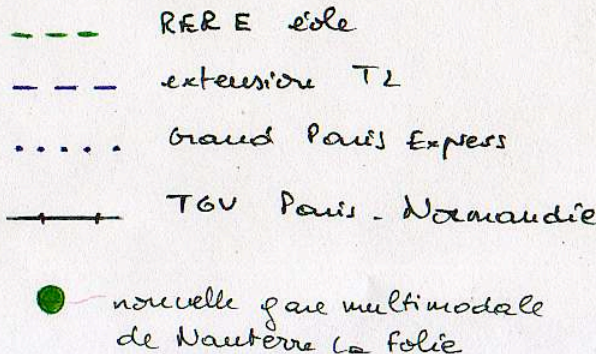 RER E éole
extension T2
Grand Paris Express
TGV Paris - Normandie
nouvelle gare multimodale
de Nanterre la folie